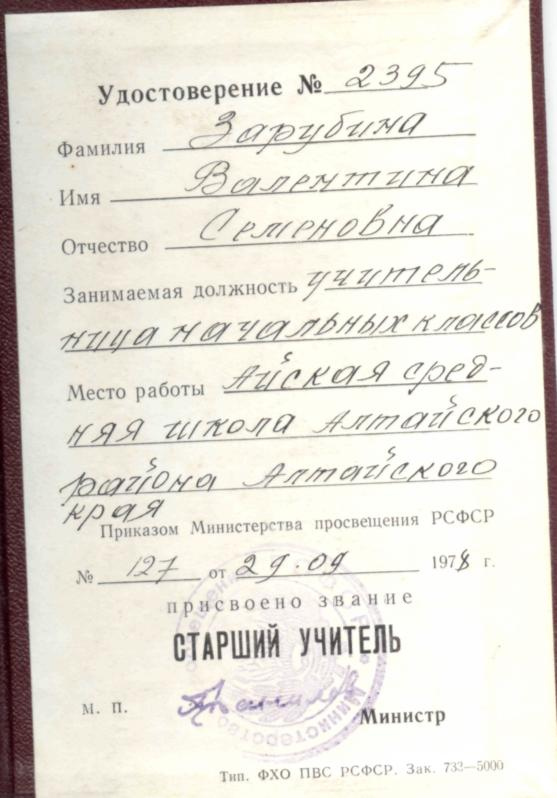 Удостоверение № 2395
Фамилия Зарубина
Имя Валентина
Отчество Семеновна
Занимаемая должность учитель-
ница начальных классов
Место работы Айская сред-
няя школа Алтайского
района Алтайского
края
Приказом Министерства просвещения РСФСР
№ 127 от 29.09 1978 г.
присвоено звание
СТАРШИЙ УЧИТЕЛЬ
М. П.
Министр
Министерство
Тип. ФХО ПВС РСФСР. Зак. 733—5000